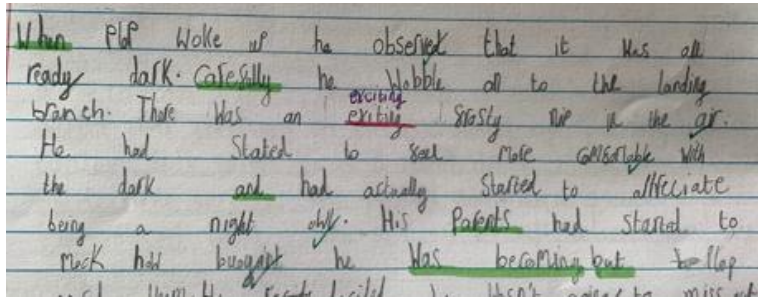 When Plop woke up he observed that it was all
ready dark. Carefully he wobble on to the landing
branch. There was an exiting frosty nip in the air.
exciting
He had Stated to feel more comfortable with
the dark and had actually started to appreciate
being a night owl. His Parents had started to
mock how buoyant he was becoming but Plop